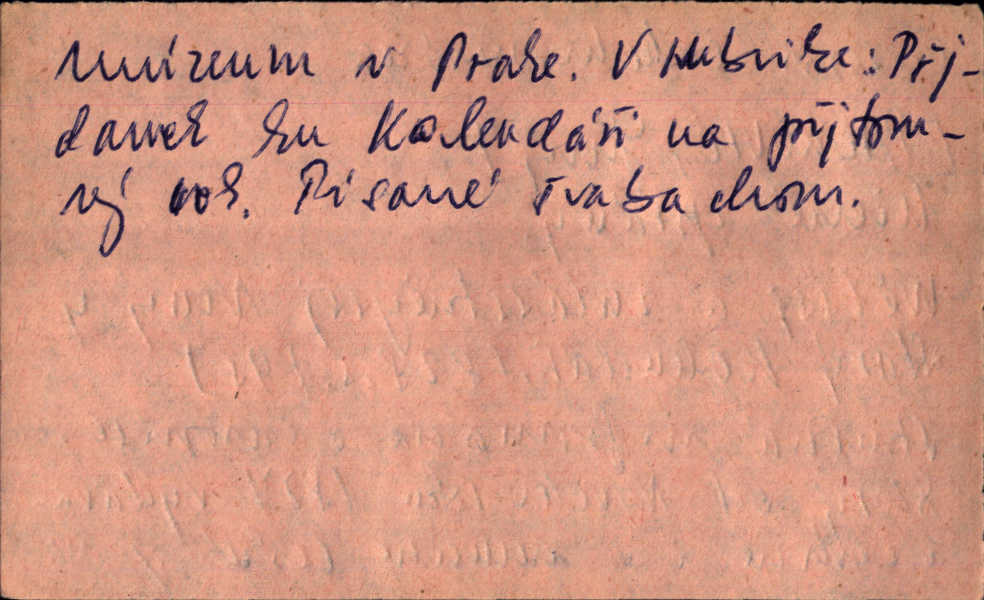 Muízeum v Prahe. V rubrike: Přj-
davek ku Kalendáři na přjtom-
ný rok. Písané švabachom.